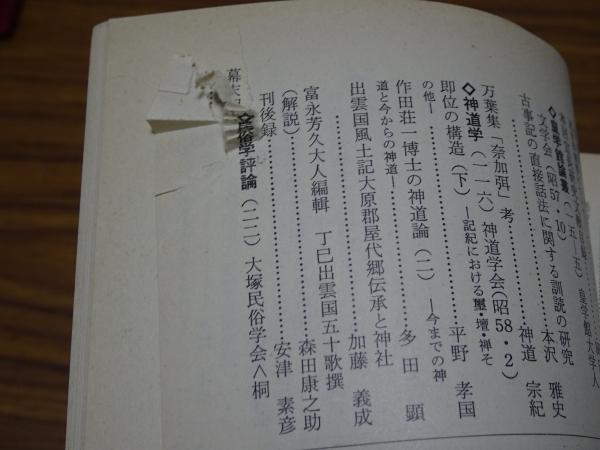 ◇皇学館論叢(一五-五) 皇学館大学人
文学会(昭57・10)
古事記の直接話法に関する訓読の研究
本沢 雅史
万葉集「奈加弭」考……神道 宗紀
◇神道学(一一六)神道学会(昭58・2)
即位の構造(下)―記紀における壐・壇・禅そ
の他―……平野 孝国
作田荘一博士の神道論(二)―今までの神
道と今からの神道―……多田 顕
出雲国風土記大原郡屋代郷伝承と神社
……加藤 義成
富永芳久大人編輯 丁巳出雲国五十歌撰
(解説)……森田康之助
刊後録……安津 素彦
民俗学評論(二二)大塚民俗学会<桐
幕末